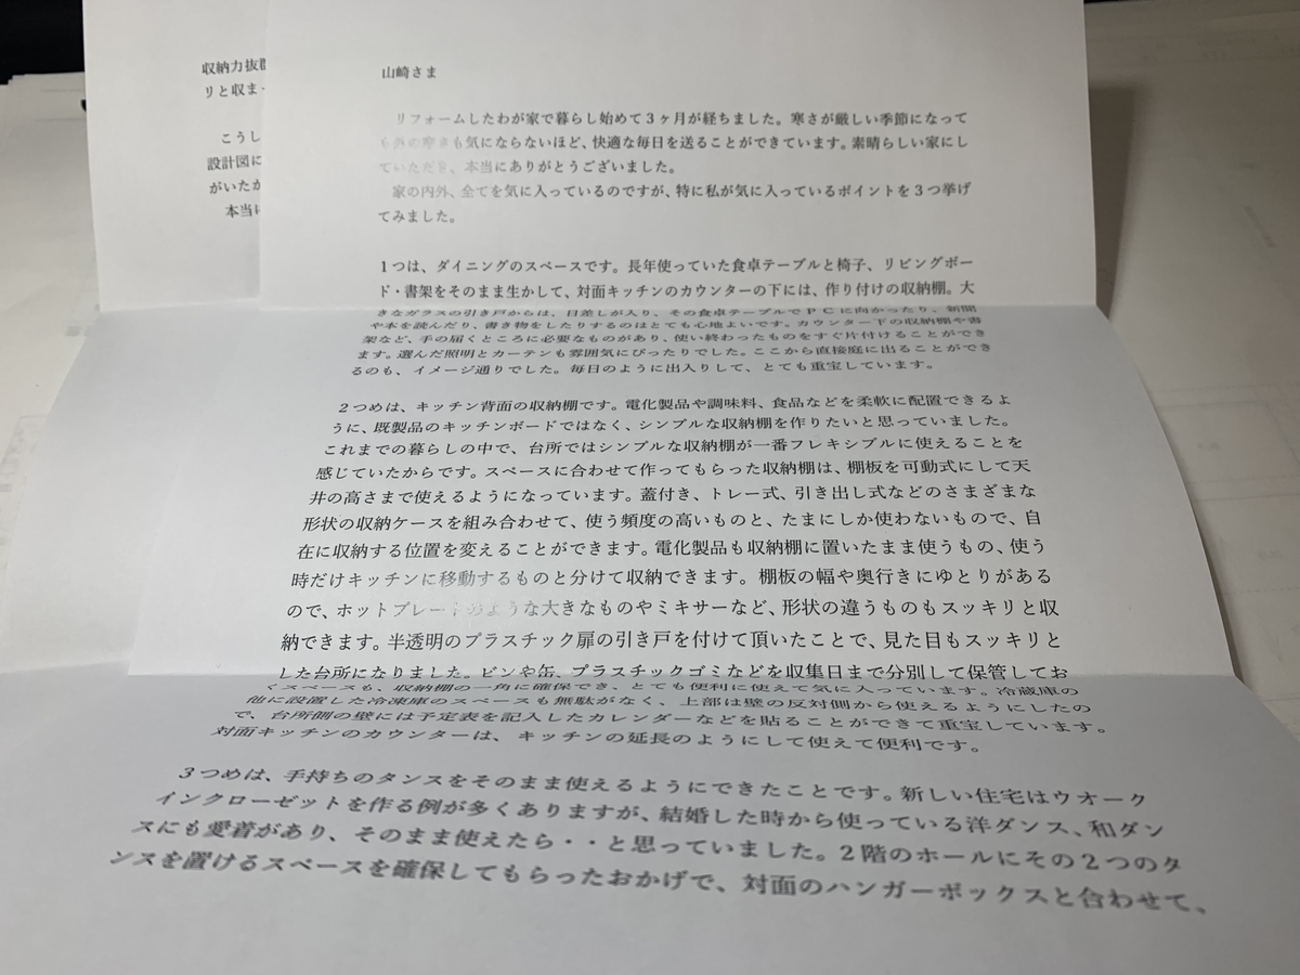 山崎さま
リフォームしたわが家で暮らし始めて３ヶ月が経ちました。寒さが厳しい季節になって
寒さも気にならないほど、快適な毎日を送ることができています。素晴らしい家にし
ていただき、本当にありがとうございました。
家の内外、全てを気に入っているのですが、特に私が気に入っているポイントを３つ挙げ
てみました。
１つは、ダイニングのスペースです。長年使っていた食卓テーブルと椅子、リビングボー
ド・書架をそのまま生かして、対面キッチンのカウンターの下には、作り付けの収納棚。大
きなガラスの引き戸からは、日差しが入り、その食卓テーブルでＰＣに向かったり、新聞
や本を読んだり、書き物をしたりするのはとても心地よいです。カウンター下の収納棚や書
架など、手の届くところに必要なものがあり、使い終わったものをすぐ片付けることができ
ます。選んだ照明とカーテンも雰囲気にぴったりでした。ここから直接庭に出ることができ
るのも、イメージ通りでした。毎日のように出入りして、とても重宝しています。
２つめは、キッチン背面の収納棚です。電化製品や調味料、食品などを柔軟に配置できるよ
うに、既製品のキッチンボードではなく、シンプルな収納棚を作りたいと思っていました。
これまでの暮らしの中で、台所ではシンプルな収納棚が一番フレキシブルに使えることを
感じていたからです。スペースに合わせて作ってもらった収納棚は、棚板を可動式にして天
井の高さまで使えるようになっています。蓋付き、トレー式、引き出し式などのさまざまな
形状の収納ケースを組み合わせて、使う頻度の高いものと、たまにしか使わないもので、自
在に収納する位置を変えることができます。電化製品も収納棚に置いたまま使うもの、使う
時だけキッチンに移動するものと分けて収納できます。棚板の幅や奥行きにゆとりがある
ので、ホットプレートのような大きなものやミキサーなど、形状の違うものもスッキリと収
納できます。半透明のプラスチック扉の引き戸を付けて頂いたことで、見た目もスッキリと
した台所になりました。ビンや缶、プラスチックゴミなどを収集日まで分別して保管してお
くスペースも、収納棚の一角に確保でき、とても便利に使えて気に入っています。冷蔵庫の
他に設置した冷凍庫のスペースも無駄がなく、上部は壁の反対側から使えるようにしたの
で、台所側の壁には予定表を記入したカレンダーなどを貼ることができて重宝しています。
対面キッチンのカウンターは、キッチンの延長のようにして使えて便利です。
３つめは、手持ちのタンスをそのまま使えるようにできたことです。新しい住宅はウオーク
インクローゼットを作る例が多くありますが、結婚した時から使っている洋ダンス、和ダン
スにも愛着があり、そのまま使えたら・・と思っていました。２階のホールにその２つのタ
ンスを置けるスペースを確保してもらったおかげで、対面のハンガーボックスと合わせて、
収納力抜群
リと収ま
こうし
設計図に
がいたか
本当に